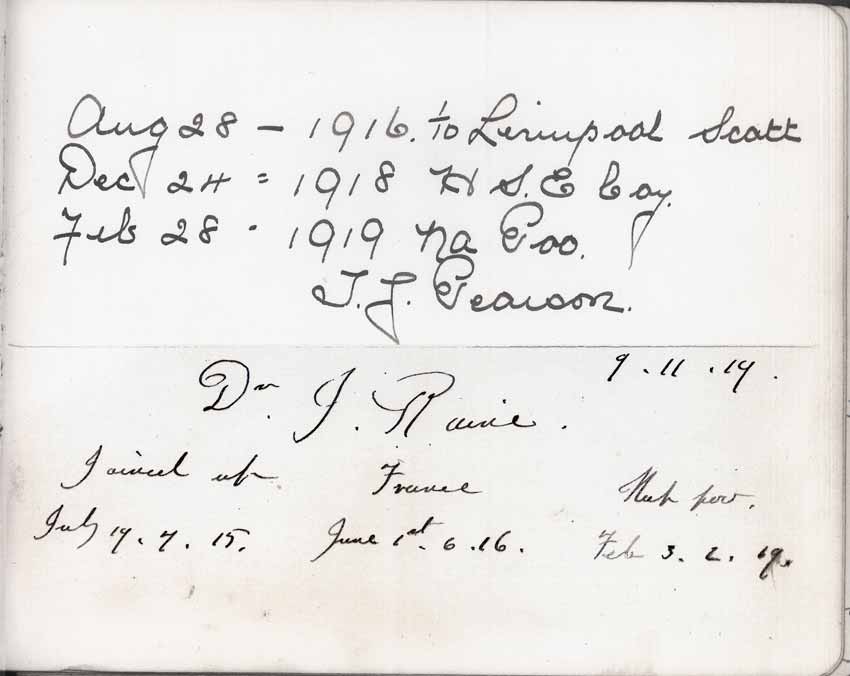 Aug 28 - 1916. 1/10 Liverpool Scott
Dec 24 = 1918 H S. E Coy.
Feb 28 · 1919 Na Poo.
T. J. Pearson.
9 . 11 . 19 .
Dr. J. Raine .
Joined up France Nap poo.
July 19. 7. 15. June 1st. 6. 16. Feb 3. 2. 19.